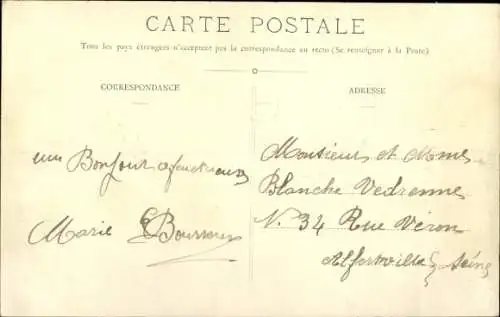 CARTE POSTALE
Tous les pays étrangers n'acceptent pas la correspondance au recto (Se renseigner à la Poste)
CORRESPONDANCE
ADRESSE
un Bonjour afectueux
Marie
Monsieur et Mme
Blanche Vedrenne
N. 34 Rue Véron
Alfortville Seine